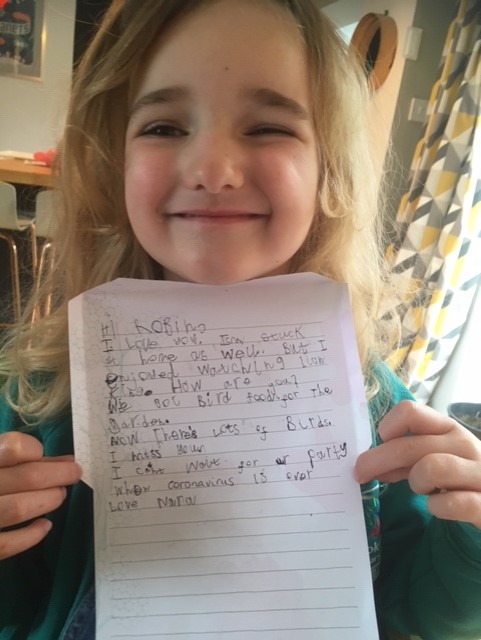 Hi Robin,
I Love you. Im stuck
at home as well. But I
enjoyed watching Lion
King. How are you?
We got Bird food for the
garden.
Now There's Lots of Birds.
I miss you.
I cant Wait for or party
when coronavirus is over
Love Nara